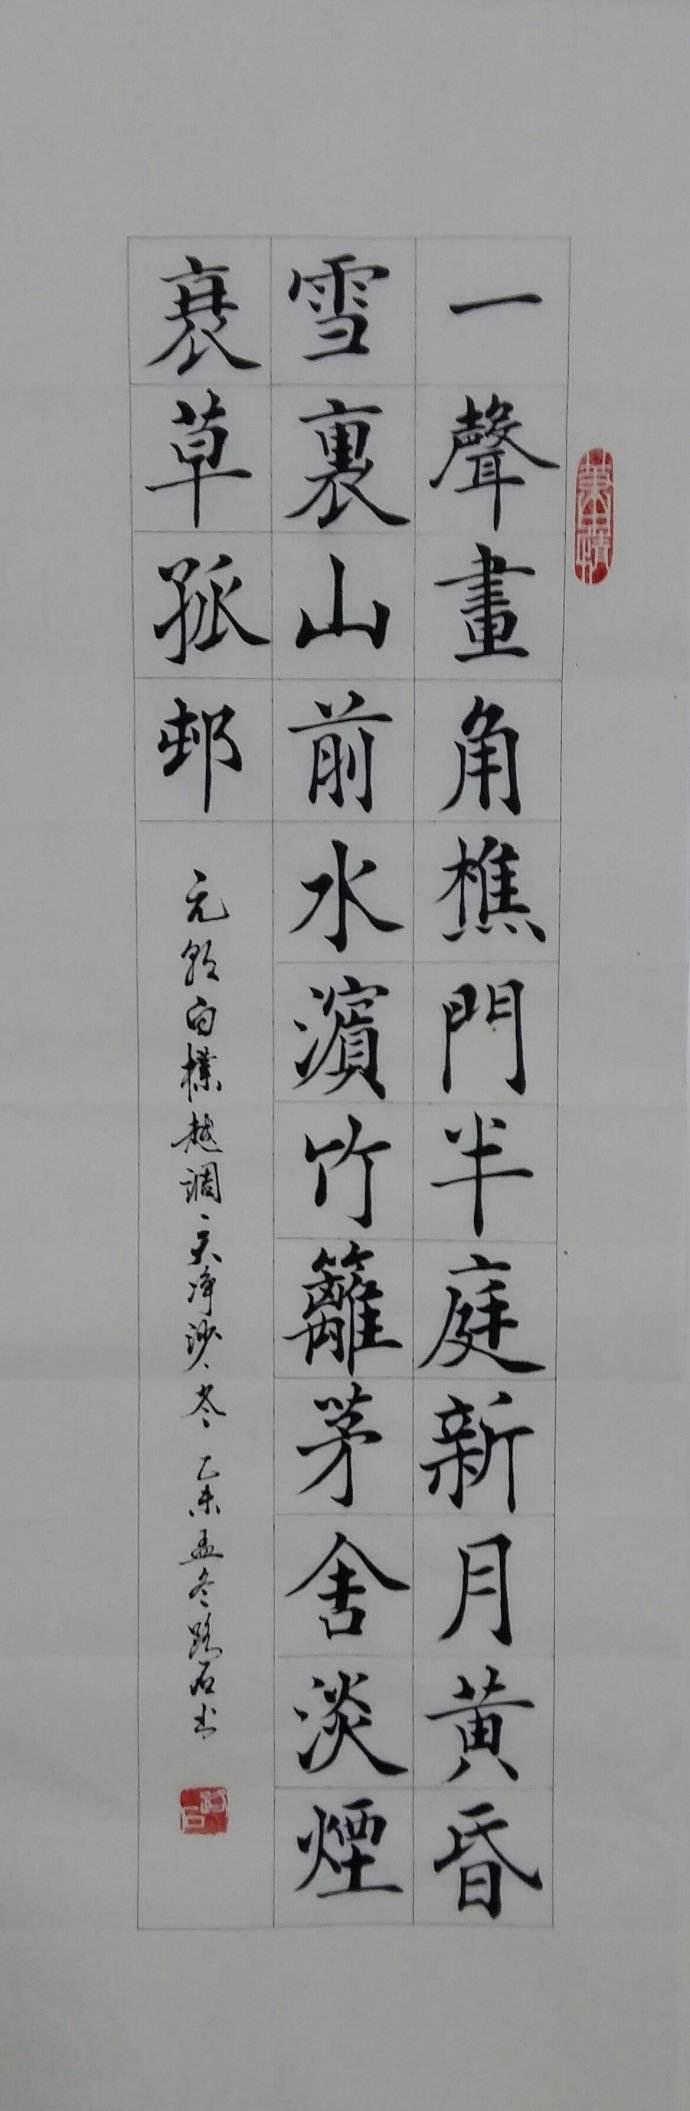 一聲畫角樵門半庭新月黄昏
雪裏山前水濱竹籬茅舍淡煙
衰草孤邨
元朝白樸越调·天净沙·冬 乙未孟冬 石书